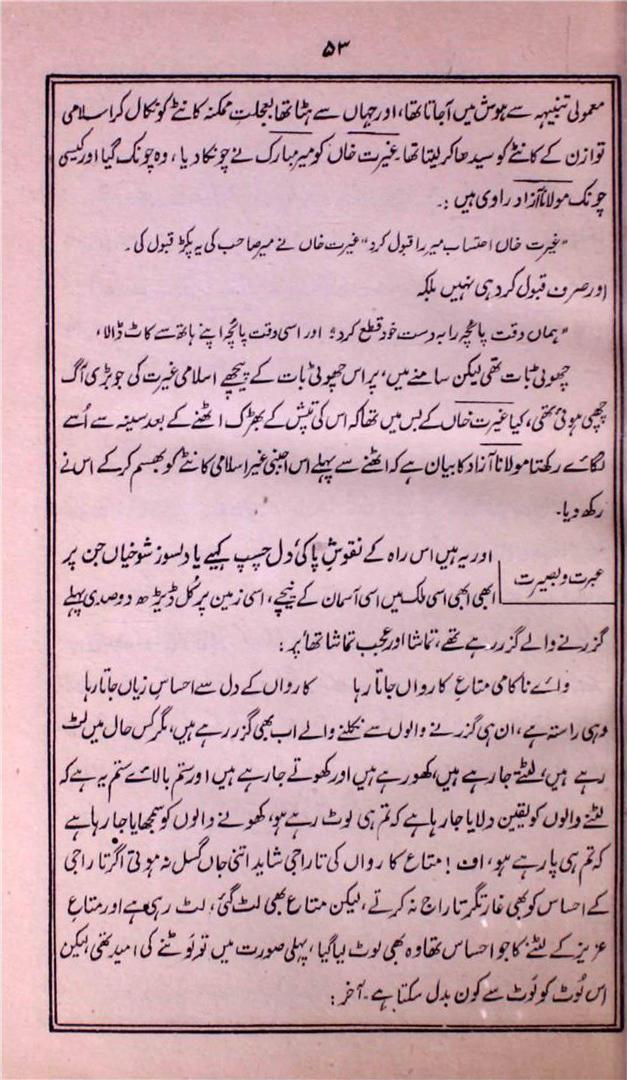 ۵۳
معمولی تنبیہہ سے ہوش میں آجاتا تھا، اور جہاں سے ہٹا تھا بعجلتِ ممکنہ کانٹے کو نکال کر اسلامی
توازن کے کانٹے کو سیدھا کر لیتا تھا۔ غیرت خاں کو میر مبارک نے چونکا دیا، وہ چونک گیا اور کیسی
چونک مولانا آزاد راوی ہیں :۔
"غیرت خاں احتساب میر را قبول کرد" غیرت خاں نے میر صاحب کی یہ پکڑ قبول کی۔
اور صرف قبول کر دہی نہیں بلکہ
"ہماں وقت پائچہ را بہ دست خود قطع کرد" اور اسی وقت پائچہ اپنے ہاتھ سے کاٹ ڈالا،
چھوٹی بات تھی لیکن سامنے میں، پر اس چھوٹی بات کے پیچھے اسلامی غیرت کی جو بڑی آگ
چھپی ہوئی تھی، کیا غیرت خاں کے بس میں تھا کہ اس کی تپش کے بھڑک اٹھنے کے بعد سینہ سے اُسے
لگائے رکھتا مولانا آزاد کا بیان ہے کہ اٹھنے سے پہلے اس اجنبی غیر اسلامی کانٹے کو بھسم کر کے اس نے
رکھ دیا۔
عبرت و بصیرت
اور یہ ہیں اس راہ کے نقوشِ پا کی دل چسپ کہیے یا دلسوز شوخیاں جن پر
ابھی ابھی اسی ملک میں اسی آسمان کے نیچے، اسی زمین پر کُل ڈیڑھ دو صدی پہلے
گزرنے والے گزر رہے تھے، تماشا اور عجب تماشا تھا، پر :
وائے ناکامی متاعِ کارواں جاتا رہا کارواں کے دل سے احساسِ زیاں جاتا رہا
وہی راستہ ہے، ان ہی گزرنے والوں سے نکلنے والے اب بھی گزر رہے ہیں، مگر کس حال میں لٹ
رہے ہیں، لٹتے جا رہے ہیں، کھو رہے ہیں اور کھوتے جا رہے ہیں اور ستم بالائے ستم یہ ہے کہ
لٹنے والوں کو یقین دلایا جا رہا ہے کہ تم ہی لوٹ رہے ہو، کھونے والوں کو سمجھایا جا رہا ہے
کہ تم ہی پا رہے ہو، اف ! متاع کارواں کی تاراجی شاید اتنی جاں گسل نہ ہوتی اگر تاراجی
کے احساس کو بھی غارتگر تاراج نہ کرتے، لیکن متاع بھی لٹ گئی، لٹ رہی ہے اور متاعِ
عزیز کے لٹنے کا جو احساس تھا وہ بھی لوٹ لیا گیا، پہلی صورت میں تو لَوٹنے کی امید تھی، لیکن
اس لُوٹ کو لَوٹ سے کون بدل سکتا ہے۔ آخر :